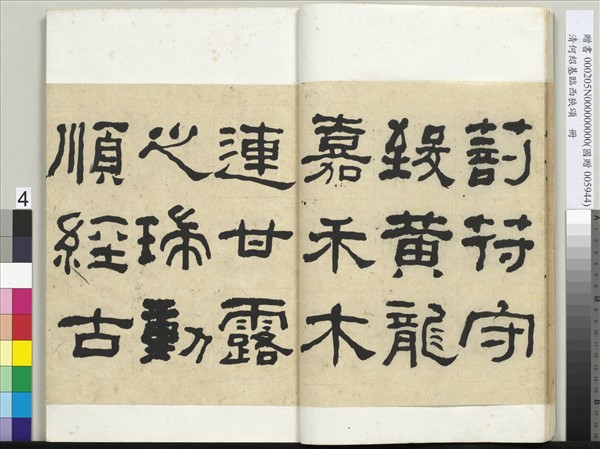 贈書 000205N000000000(國贈 005944)
清何紹基臨西狹頌 冊
剖符守
致黃龍
嘉禾木
連甘露
之瑞動
順經古
4